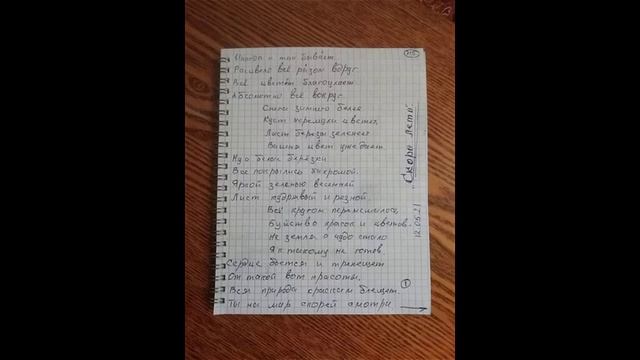 Иногда и так бывает.
Расцвело всё разом вдруг
Всё цветёт, благоухает
Абсолютно всё вокруг
Снега зимнего белее
Куст черемухи цветет
Лист березы зеленеет
Вишня цвет
Ну а белые берёзки
Все покрылись бахромой.
Яркой зеленью весенней
Лист кудрявый и резной.
Всё кругом переменилось,
Буйство красок и цветов.
Не земля а чудо стало
Я к такому не готов.
Сердце бьется и трепещет
От такой вот красоты.
Вся природа красками блещет
Ты на мир скорей смотри
Скоро лето
12.05.21
1